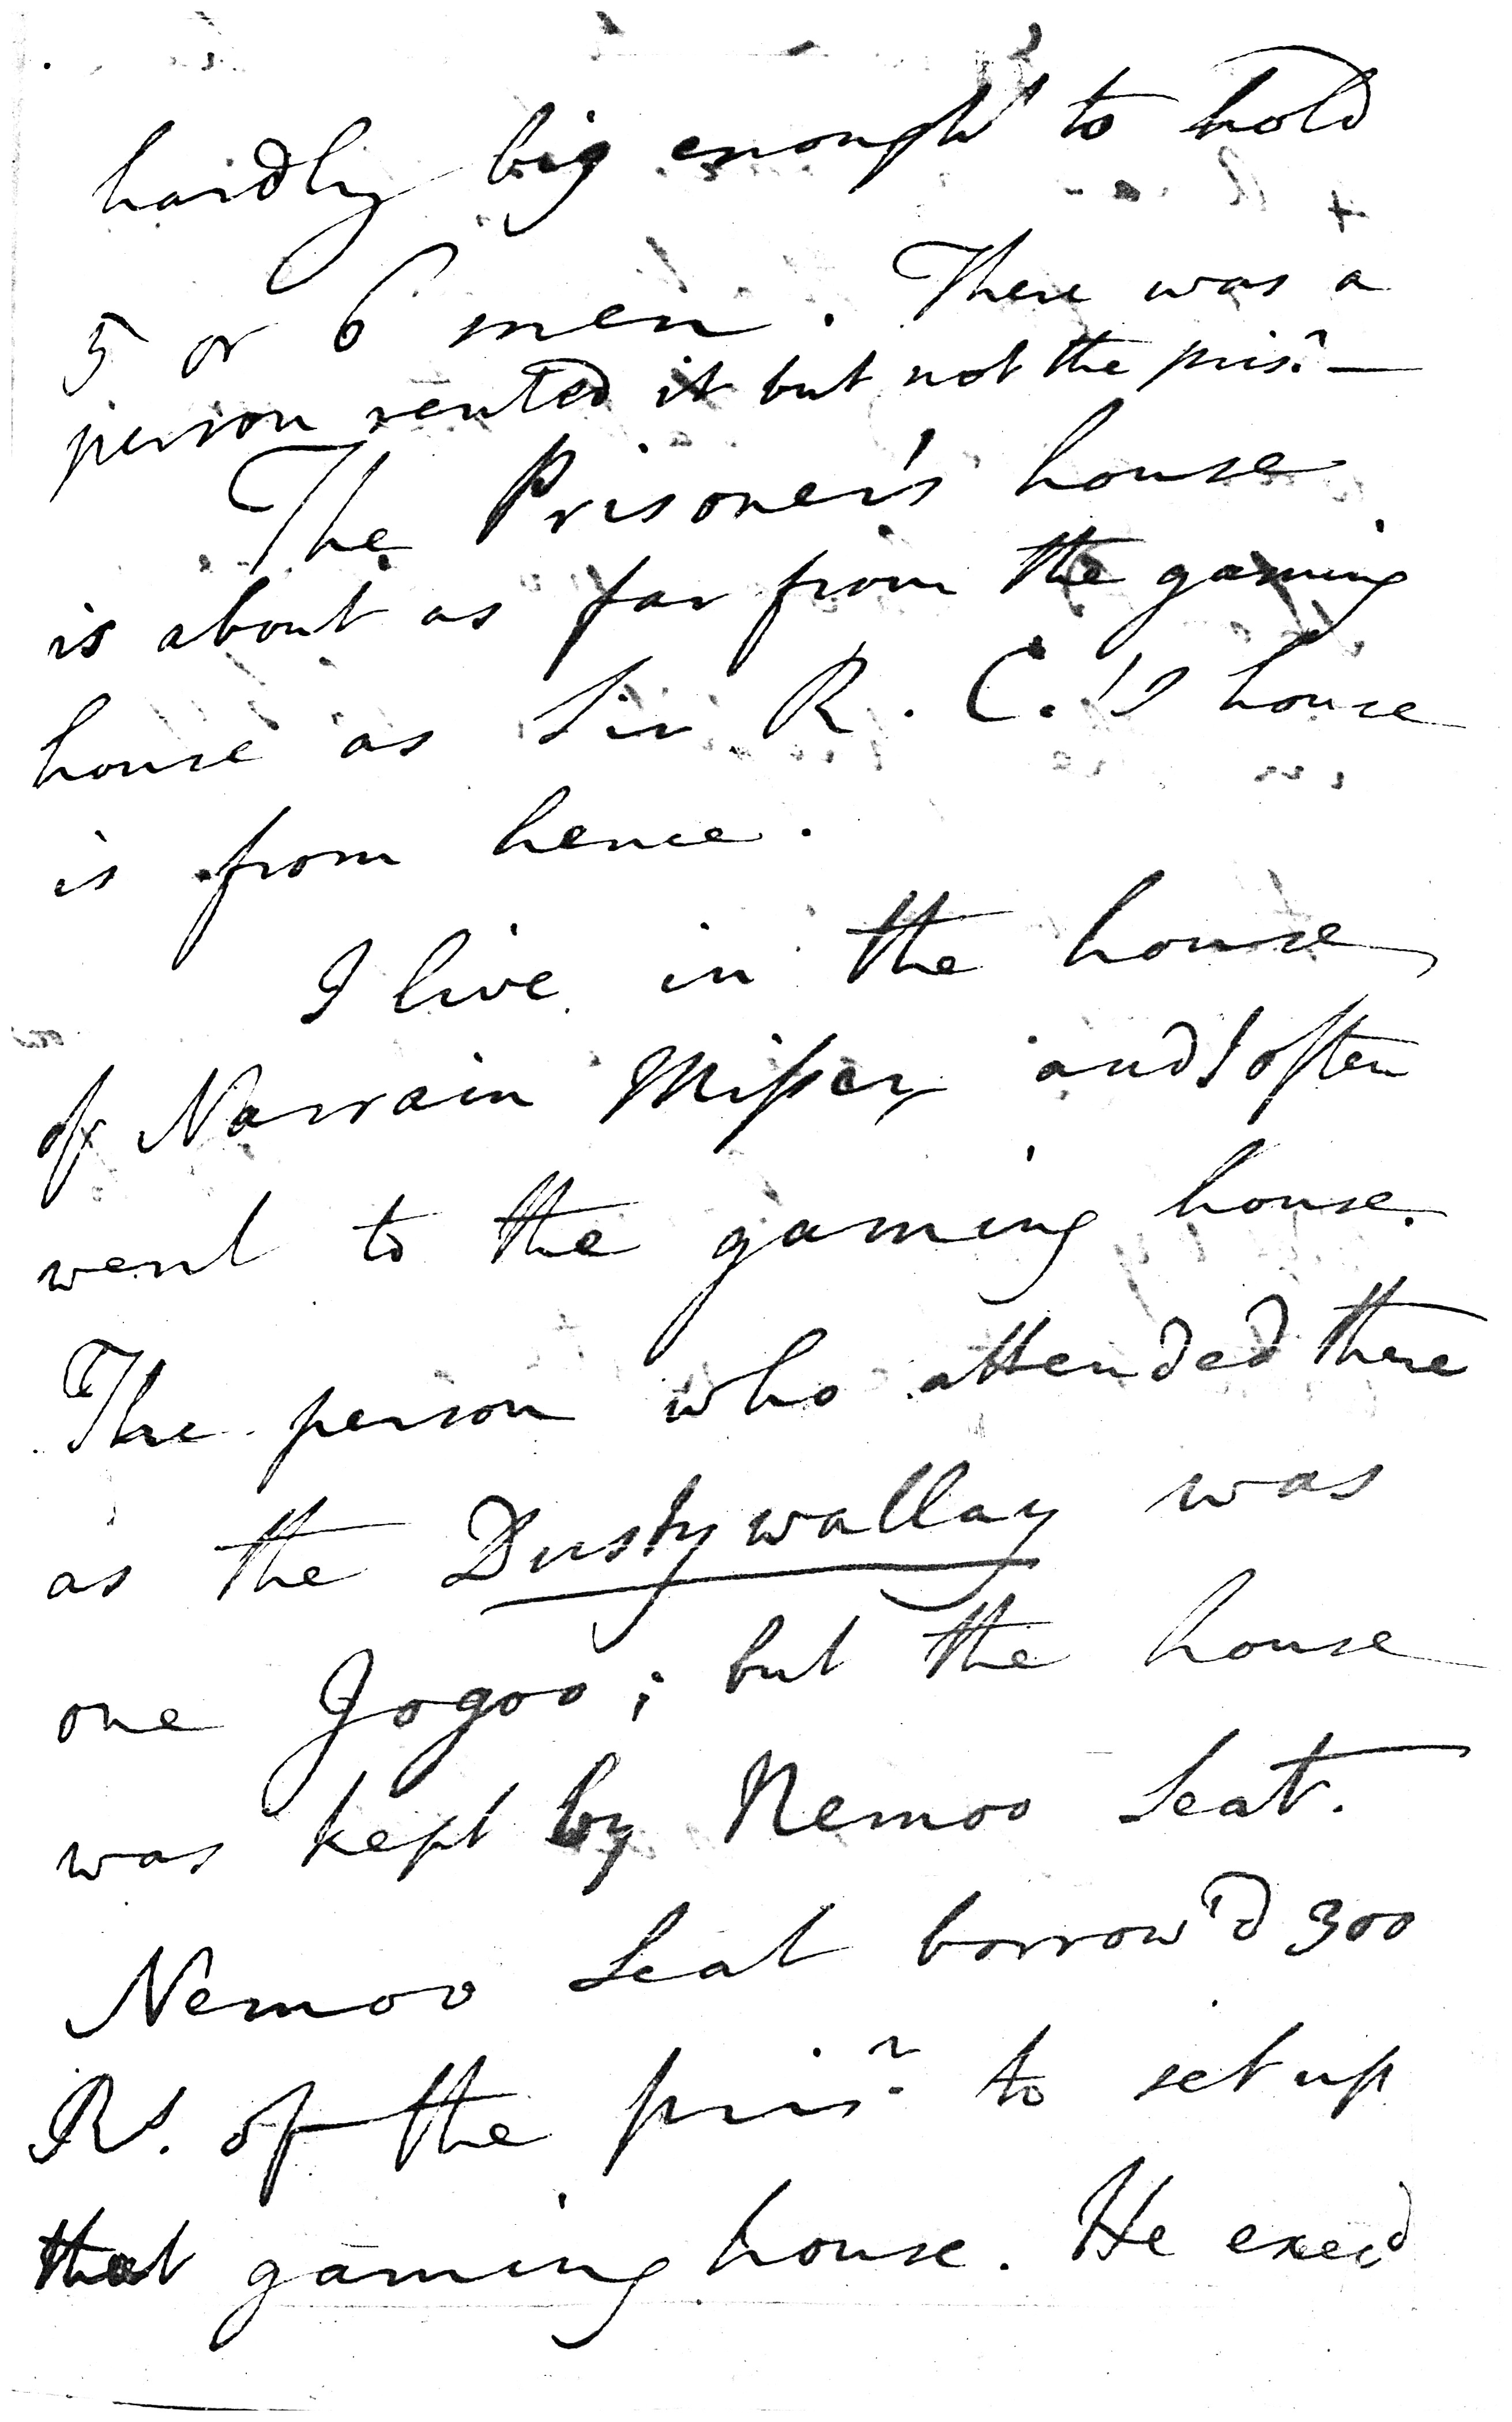 hardly big enough to hold
5 or 6 men. There was a
person rented it but not the pris.r —
The Prisoner's house
is about as far from the gaming
house as Sir R. C.'s house
is from hence.
I live in the house
of Narrain Misser and I often
went to the gaming house.
The person who attended there
as the Dustywallay was
one Jogoo; but the house
was kept by Nemoo Seat.
Nemoo Seat borrow'd 300
Rs. of the pris.r to set up
that gaming house. He exec'd